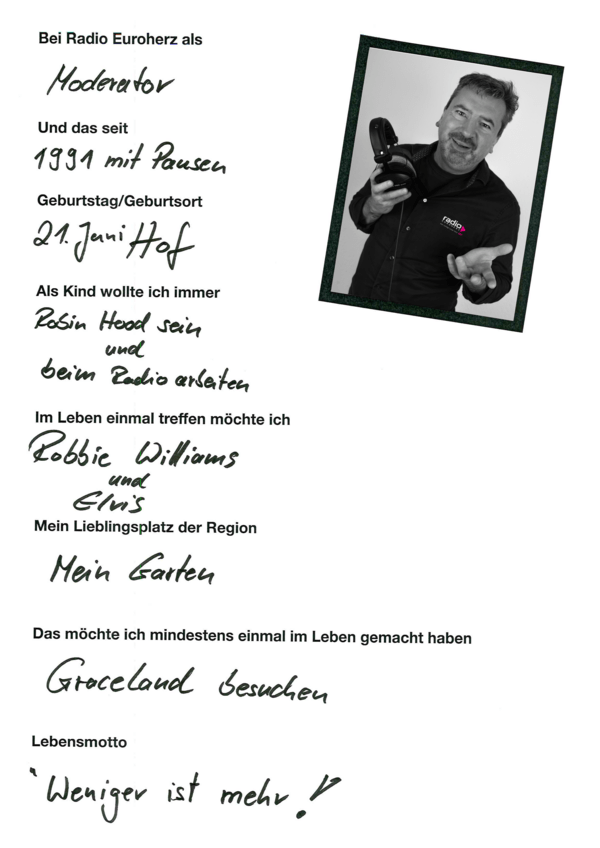 Bei Radio Euroherz als
Moderator
Und das seit
1991 mit Pausen
Geburtstag/Geburtsort
21. Juni Hof
radio
Als Kind wollte ich immer
Robin Hood sein
und
beim Radio arbeiten
Im Leben einmal treffen möchte ich
Robbie Williams
und
Elvis
Mein Lieblingsplatz der Region
Mein Garten
Das möchte ich mindestens einmal im Leben gemacht haben
Graceland besuchen
Lebensmotto
"Weniger ist mehr!"